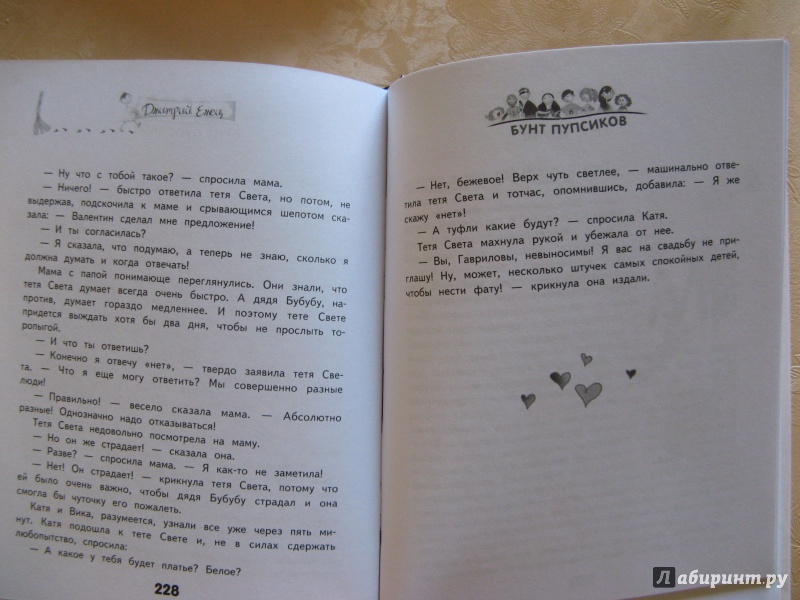 Дмитрий Емец
— Ну что с тобой такое? — спросила мама.
— Ничего! — быстро ответила тетя Света, но потом, не
выдержав, подскочила к маме и срывающимся шепотом ска-
зала: — Валентин сделал мне предложение!
— И ты согласилась?
— Я сказала, что подумаю, а теперь не знаю, сколько я
должна думать и когда отвечать!
Мама с папой понимающе переглянулись. Они знали, что
тетя Света думает всегда очень быстро. А дядя Бубубу, на-
против, думает гораздо медленнее. И поэтому тете Свете
придется выждать хотя бы два дня, чтобы не прослыть то-
ропыгой.
— И что ты ответишь?
— Конечно я отвечу «нет», — твердо заявила тетя Све-
та. — Что я еще могу ответить? Мы совершенно разные
люди!
— Правильно! — весело сказала мама. — Абсолютно
разные! Однозначно надо отказываться!
Тетя Света недовольно посмотрела на маму.
— Но он же страдает! — сказала она.
— Разве? — спросила мама. — Я как-то не заметила!
— Нет! Он страдает! — крикнула тетя Света, потому что
ей было очень важно, чтобы дядя Бубубу страдал и она
смогла бы чуточку его пожалеть.
Катя и Вика, разумеется, узнали все уже через пять ми-
нут. Катя подошла к тете Свете и, не в силах сдержать
любопытство, спросила:
— А какое у тебя будет платье? Белое?
228
БУНТ ПУПСИКОВ
— Нет, бежевое! Верх чуть светлее, — машинально отве-
тила тетя Света и тотчас, опомнившись, добавила: — Я же
скажу «нет»!
— А туфли какие будут? — спросила Катя.
Тетя Света махнула рукой и убежала от нее.
— Вы, Гавриловы, невыносимы! Я вас на свадьбу не при-
глашу! Ну, может, несколько штучек самых спокойных детей,
чтобы нести фату! — крикнула она издали.
Лабиринт.ру